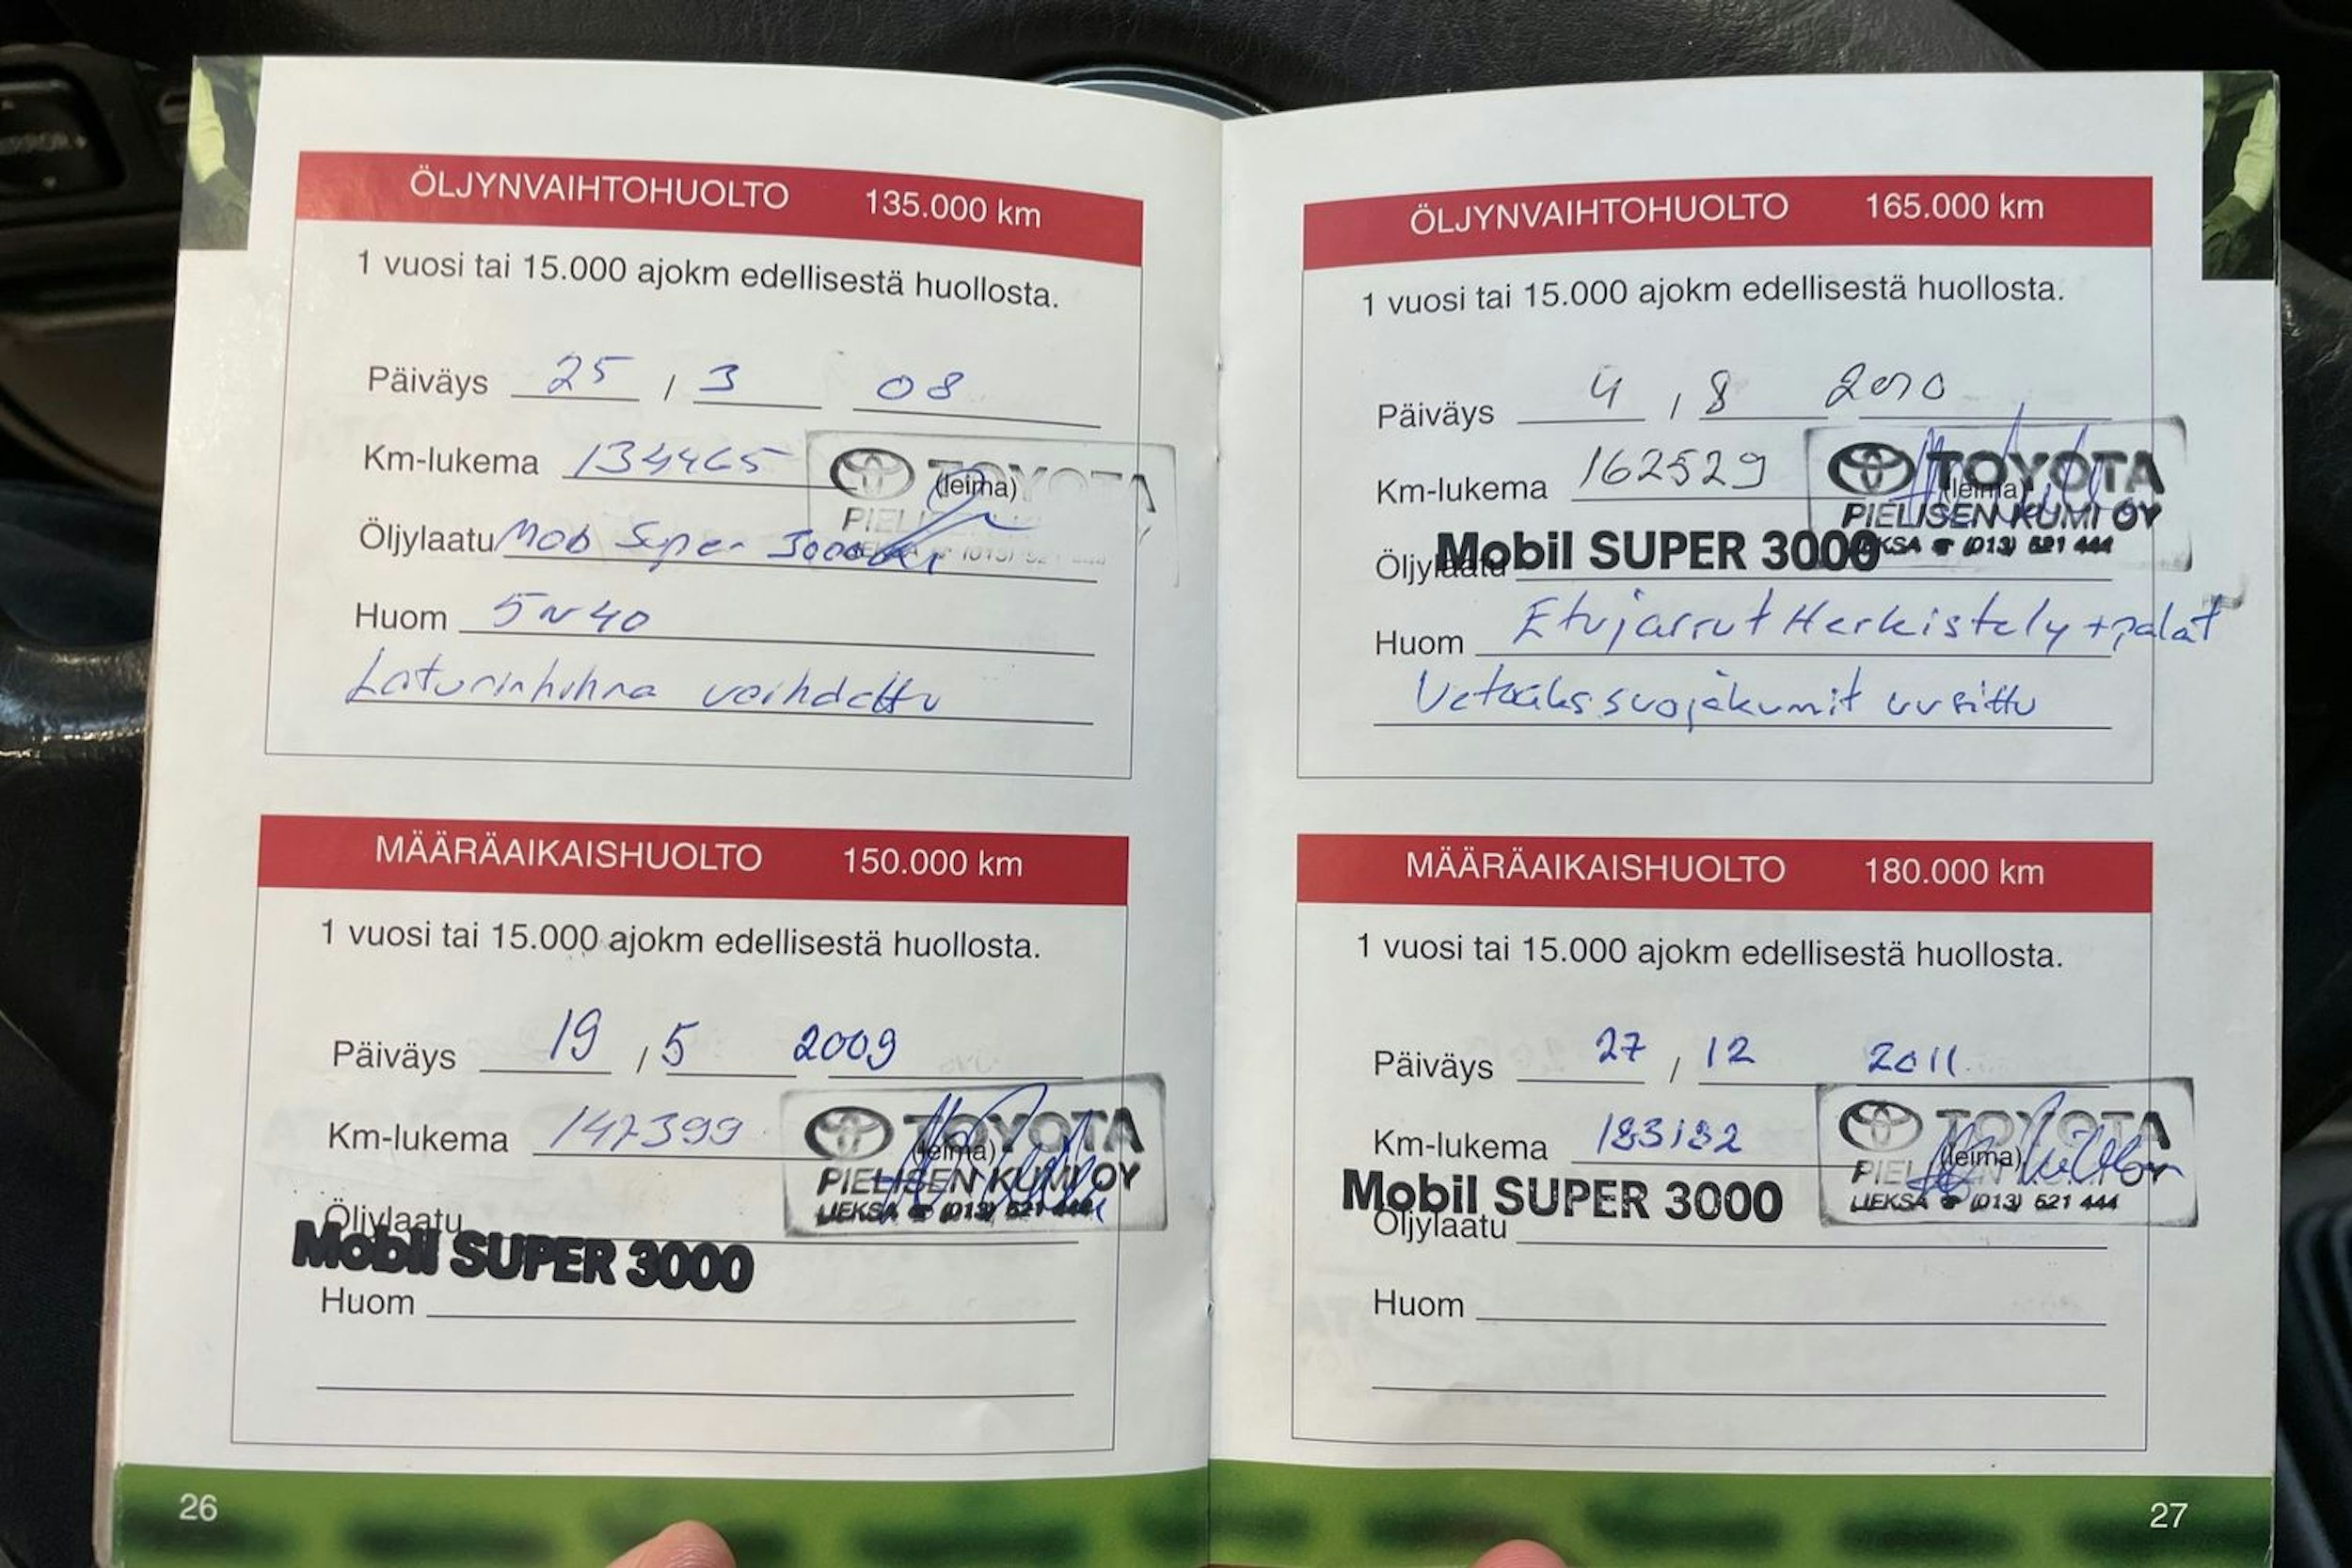 ÖLJYNVAIHTOHUOLTO 135.000 km
1 vuosi tai 15.000 ajokm edellisestä huollosta.
Päiväys 25 / 3 08
Km-lukema 134465
TOYOTA
(leima)
Öljylaatu Mob Super 3000
Huom 5W40
Laturinhihna vaihdettu
MÄÄRÄAIKAISHUOLTO 150.000 km
1 vuosi tai 15.000 ajokm edellisestä huollosta.
Päiväys 19 / 5 2009
Km-lukema 147399
TOYOTA
(leima)
PIELISEN KUMI OY
LIEKSA ☎ (013) 521 444
Öljylaatu
Mobil SUPER 3000
Huom
26
ÖLJYNVAIHTOHUOLTO 165.000 km
1 vuosi tai 15.000 ajokm edellisestä huollosta.
Päiväys 4 / 8 2010
Km-lukema 162529
TOYOTA
(leima)
PIELISEN KUMI OY
LIEKSA ☎ (013) 521 444
Öljylaatu Mobil SUPER 3000
Huom Etujarrut Herkistely + palat
Vetoaks suojakumit uusittu
MÄÄRÄAIKAISHUOLTO 180.000 km
1 vuosi tai 15.000 ajokm edellisestä huollosta.
Päiväys 27 / 12 2011
Km-lukema 183182
TOYOTA
(leima)
LIEKSA ☎ (013) 521 444
Mobil SUPER 3000
Öljylaatu
Huom
27